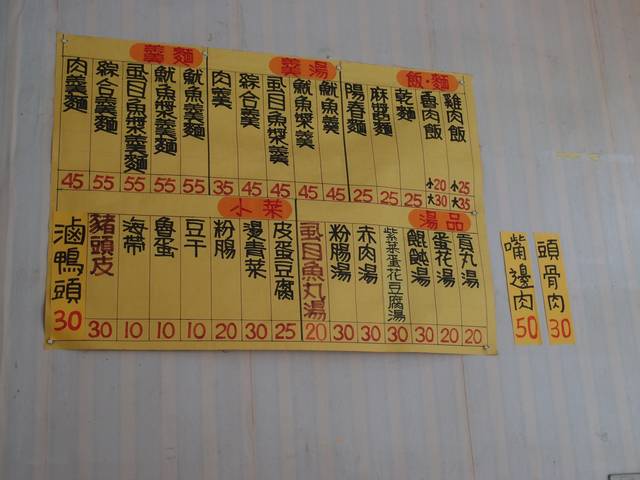 飯·麵
雞肉飯 小25 大35
魯肉飯 小20 大30
乾麵 25
麻醬麵 25
陽春麵 25
羹湯
魷魚羹 45
魷魚漿羹 45
虱目魚漿羹 45
綜合羹 45
肉羹 35
羹麵
魷魚羹麵 55
魷魚漿羹麵 55
虱目魚漿羹麵 55
綜合羹麵 55
肉羹麵 45
湯品
貢丸湯 20
蛋花湯 20
餛飩湯 30
紫菜蛋花豆腐湯 30
赤肉湯 30
粉腸湯 30
虱目魚丸湯 20
小菜
皮蛋豆腐 25
燙青菜 30
粉腸 20
豆干 10
魯蛋 10
海帶 10
豬頭皮 30
滷鴨頭 30
頭骨肉 30
嘴邊肉 50